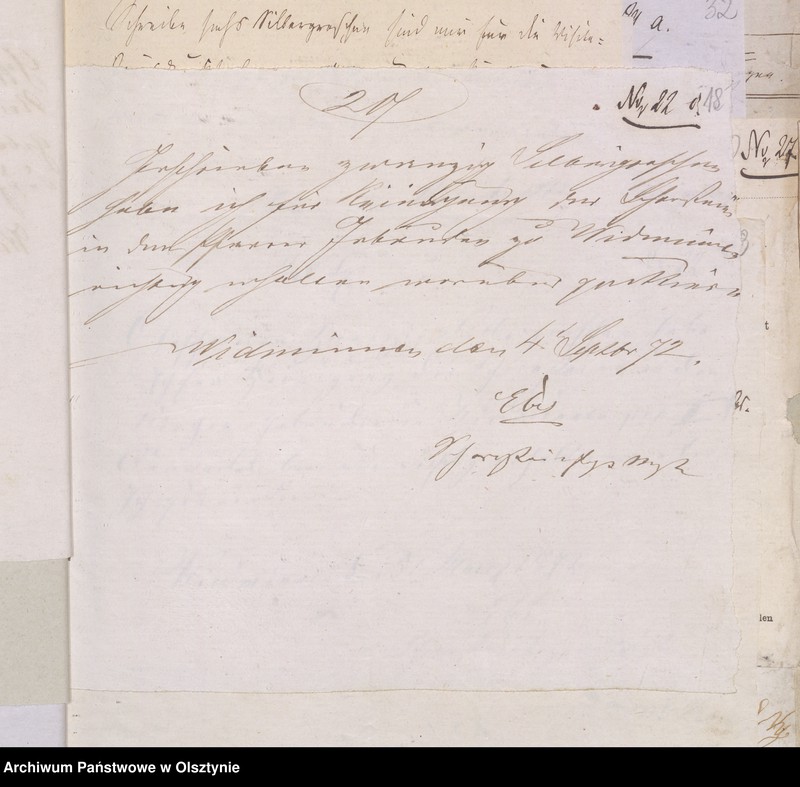 Schreibe sechs Silbergroschen sind mir für die
a.
32
20
No 22 18
No 27
Geschrieben zwanzig Silbergroschen
habe ich für Reinigung der Schorstein
in den Pfarrer Gebäuden zu Widminnen
richtig erhalten worüber quittire
Widminnen den 4 Septbr 72.
Schorsteinfegermstr
len
Archiwum Państwowe w Olsztynie